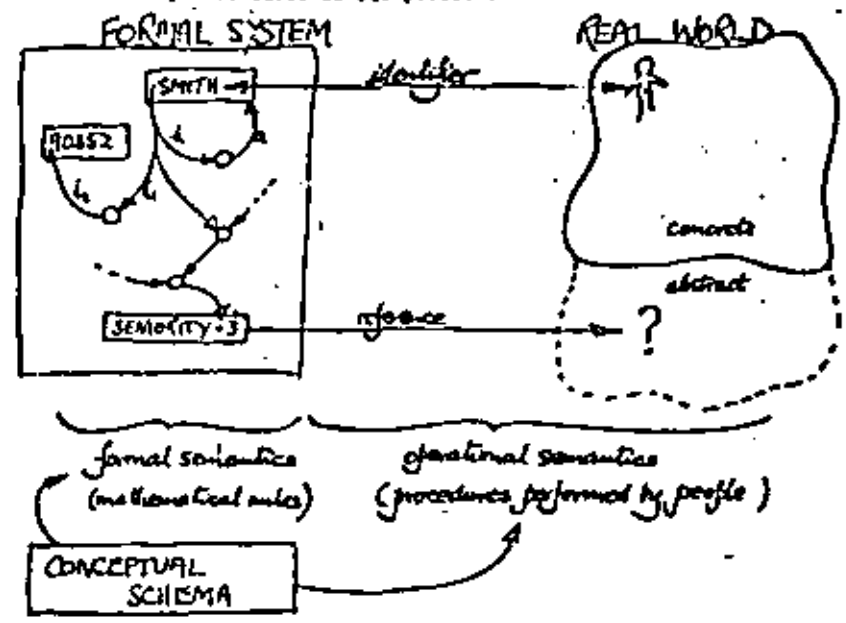 FORMAL SYSTEM
REAL WORLD
SMITH
identifier
90652
i
i₂
i₁
concrete
abstract
SENIORITY = 3
reference
?
formal semantics
operational semantics
(mathematical rules)
(procedures performed by people)
CONCEPTUAL
SCHEMA